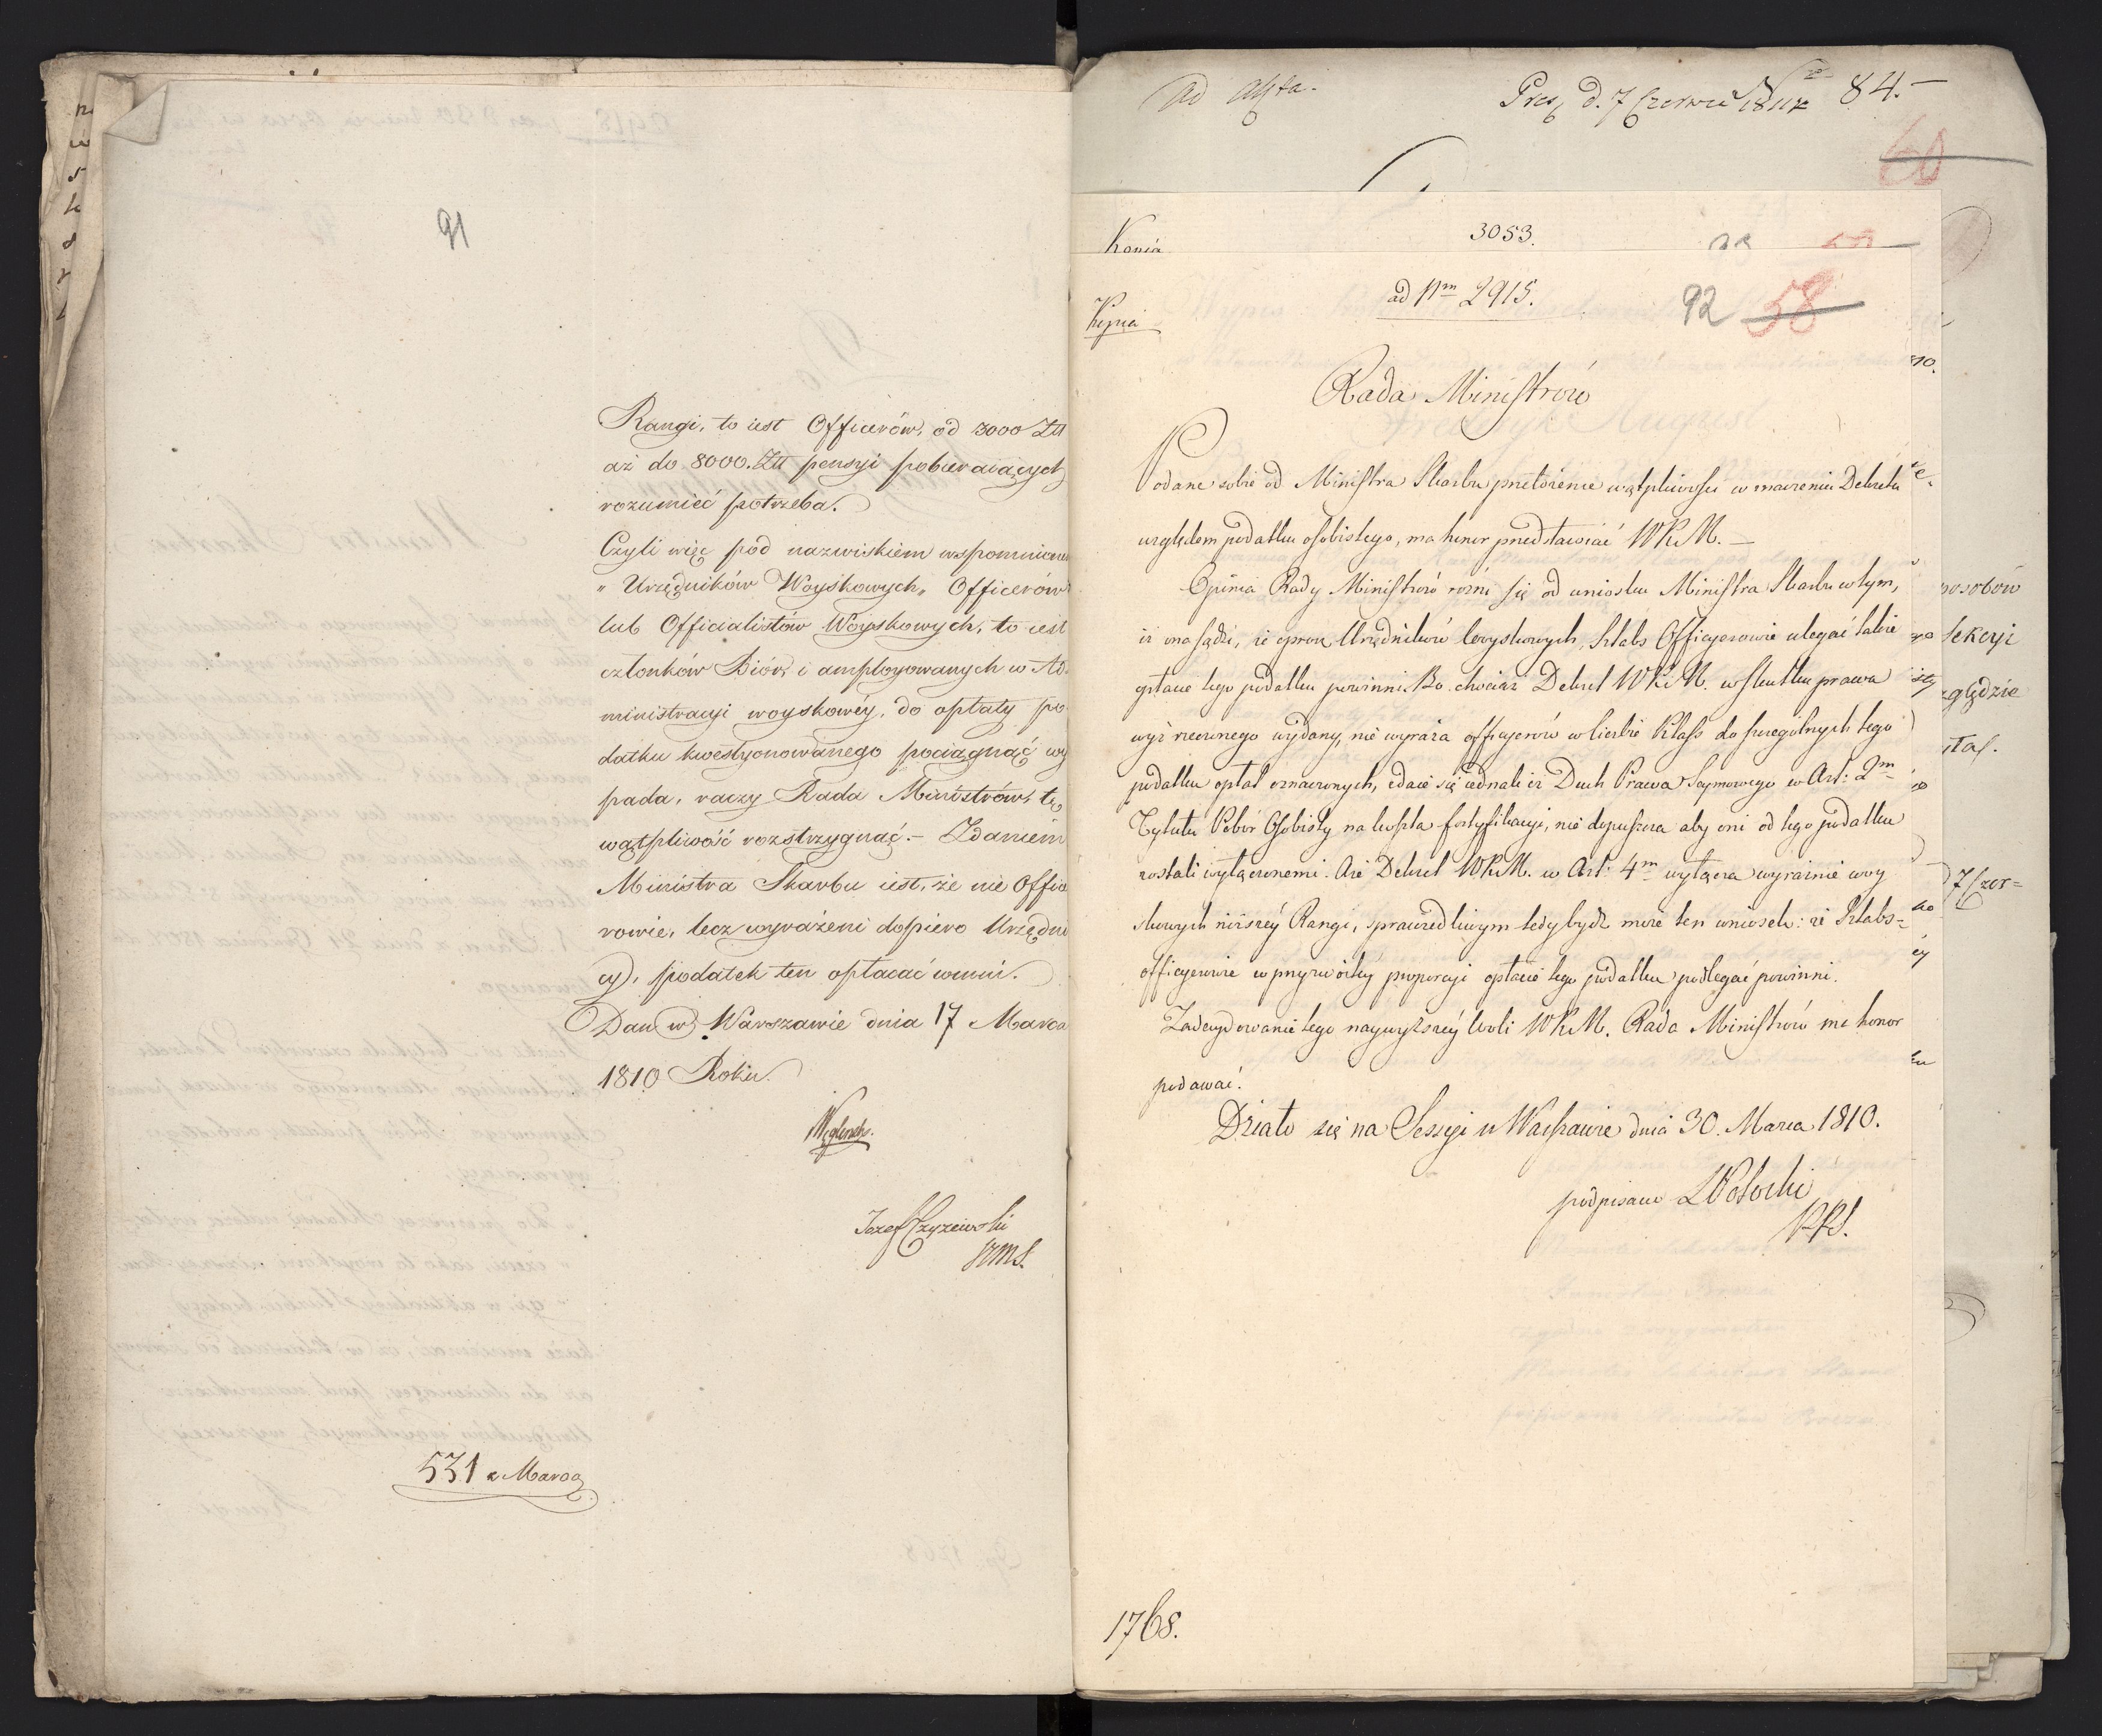 91
Rangi, to iest Officerów, od 3000 Złł
aż do 8000. Złł pensyi pobieraiących
rozumieć potrzeba.
Czyli więc pod nazwiskiem wspomnione
" Urzędników Woyskowych " Officerów
lub Officialistów Woyskowych, to iest
członków Biór, i amployowanych w Ad-
ministracyi woyskowéy, do opłaty po-
datku kwestyonowanego pociągnąć wy
pada, raczy Rada Ministrów, tę
wątpliwość rozstrzygnąć. – Zdaniem
Ministra Skarbu iest, że nie Offic
rowie, lecz wyrażeni dopiero Urzędni
cy, podatek ten opłacać winni.
Dan w Warszawie dnia 17 Marca
1810 Roku.
Węglensk.
Jozef Czyzewski
531 z Marca
Ad Acta.
Pres. d. 7 Czerwca 1811 84.
60
Kopia
3053.
ad Nm 2915.
Kopia
92 58
Rada Ministrów
Podane sobie od Ministra Skarbu przełożenie wątpliwości w znaczeniu Dekretu
względem podatku osobistego, ma honor przedstawiać WKM. —
Opinia Rady Ministrów rożni się od wniosku Ministra Skarbu w tym,
iż ona sądzi, że oprócz Urzędników woyskowych, Sztabs Officyerowie ulegać także
opłacie tego podatku powinni. Bo chociaż Dekret WKM. w skutku prawa
wyż rzeczonego wydany, nie wyraża officyerów w liczbie Klass do szczególnych tego
podatku opłat oznaczonych, zdaie się iednak iż Duch Prawa Seymowego w Art: 2m
Tytułu Pobór Osobisty na koszta fortyfikacyi, nie dopuszcza aby oni od tego podatku
zostali wyłączonemi. A że Dekret WKM. w Art: 4m wyłącza wyraźnie woy
skowych niższéy Rangi, sprawiedliwym tedy bydź może ten wniosek: że Sztabs-
officyerowie w przyzwoitéy proporcyi opłacie tego podatku podlegać powinni.
Zadecydowanie tego naywyższéy Woli WKM. Rada Ministrów ma honor
podawać.
Działo się na Sessyi w Warszawie dnia 30. Marca 1810.
podpisano Potocki
1768.
posobów
lekcyi
zględzie
7 Czer=